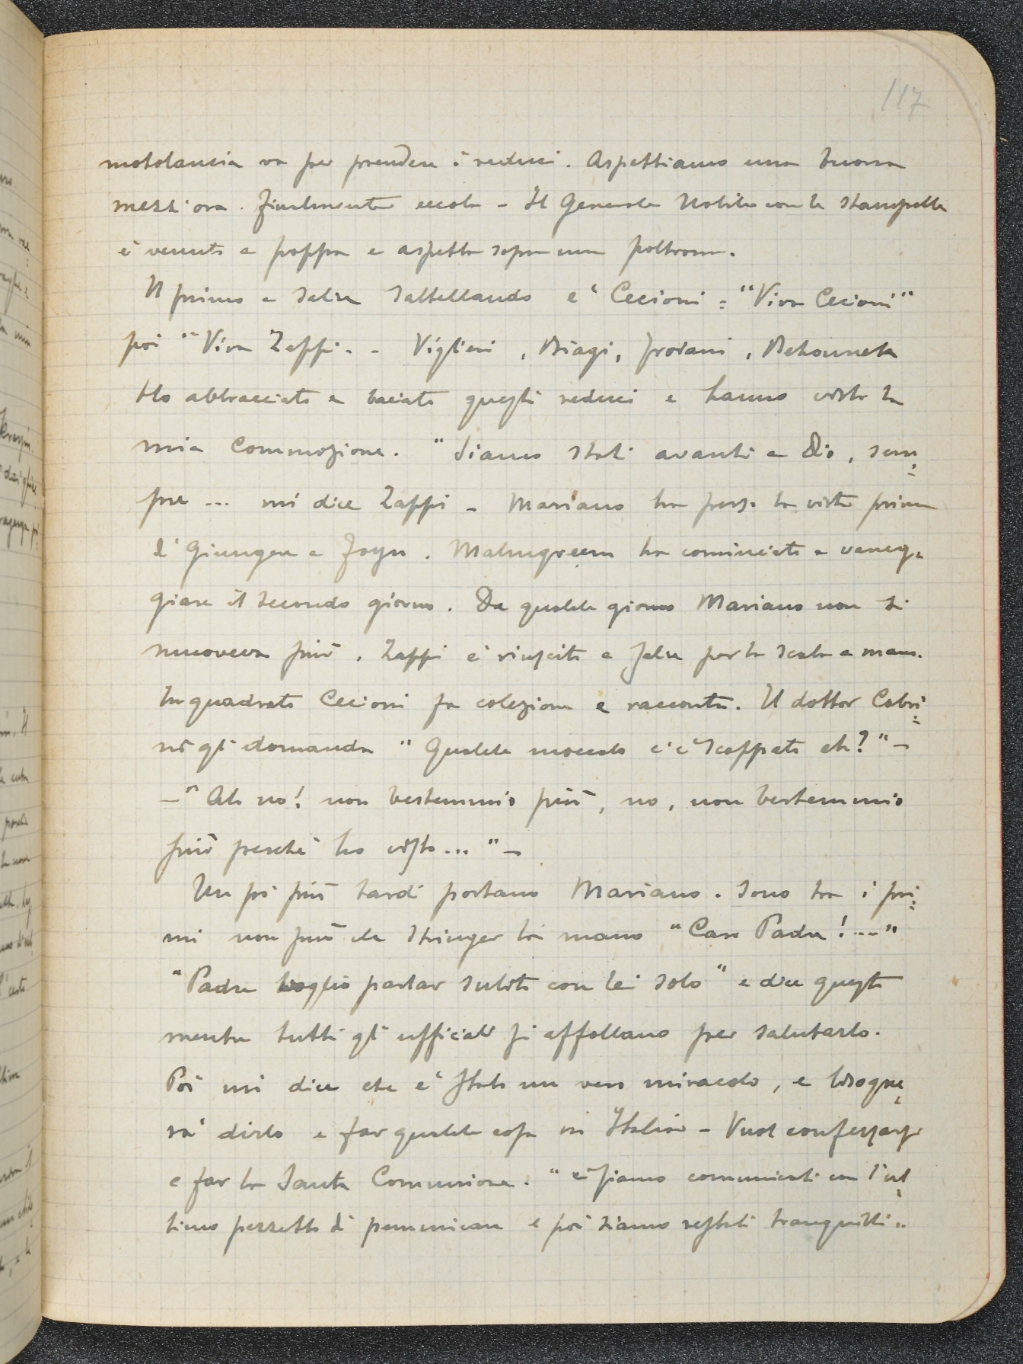 117
motolancia va per prendere i reduci. Aspettiamo una buona
mezz'ora. Finalmente eccola - Il Generale Nobile con la stampella
è venuto a poppa e aspetta sopra una poltrona.
Il primo a salire saltellando e' Cecioni = "Viva Cecioni"
poi "Viva Zappi - - Viglieri, Biagi, Troiani, Behounek
Ho abbracciato e baciato questi reduci e hanno visto la
mia commozione. "Siamo stati avanti a Dio, sem=
pre ... mi dice Zappi - Mariano ha perso la vista prima
di giungere a Foyn. Malmgreem ha cominciato a vaneg=
giare il secondo giorno. Da qualche giorno Mariano non si
muoveva più. Zappi è riuscito a salire per la scala a mano.
In quadrato Cecioni fa colezione e racconta. Il dottor Cabri=
ni gli domanda "Qualche moccolo c'è scappato eh?" -
- "Ah no! non bestemmio più, no, non bestemmio
più perchè ho visto..." -
Un pò più tardi portano Mariano. Sono tra i pri=
mi non può che stringer la mano "Caro Padre!..."
"Padre voglio parlar subito con lei solo" e dice questo
mentre tutti gli ufficiali si affollano per salutarlo.
Poi mi dice che e' stato un vero miracolo, e bisogne=
rà dirlo e far qualche cosa in Italia - Vuol confessarsi
e far la Santa Comunione. "ci siamo comunicati con l'ul=
timo pezzetto di pemmican e poi siamo restati tranquilli..